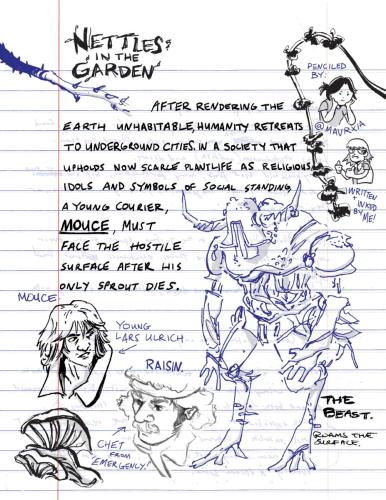 NETTLES
IN THE
GARDEN
PENCILED
BY:
@MAVRXIA
WRITTEN
+
INKED
BY ME!
AFTER RENDERING THE
EARTH UNHABITABLE, HUMANITY RETREATS
TO UNDERGROUND CITIES. IN A SOCIETY THAT
UPHOLDS NOW SCARCE PLANTLIFE AS RELIGIOUS
IDOLS AND SYMBOLS OF SOCIAL STANDING,
A YOUNG COURIER,
MOUCE, MUST
FACE THE HOSTILE
SURFACE AFTER HIS
ONLY SPROUT DIES.
MOUCE
YOUNG
LARS ULRICH
RAISIN
CHET
FROM
"EMERGENCY!"
THE
BEAST.
ROAMS THE
SURFACE.